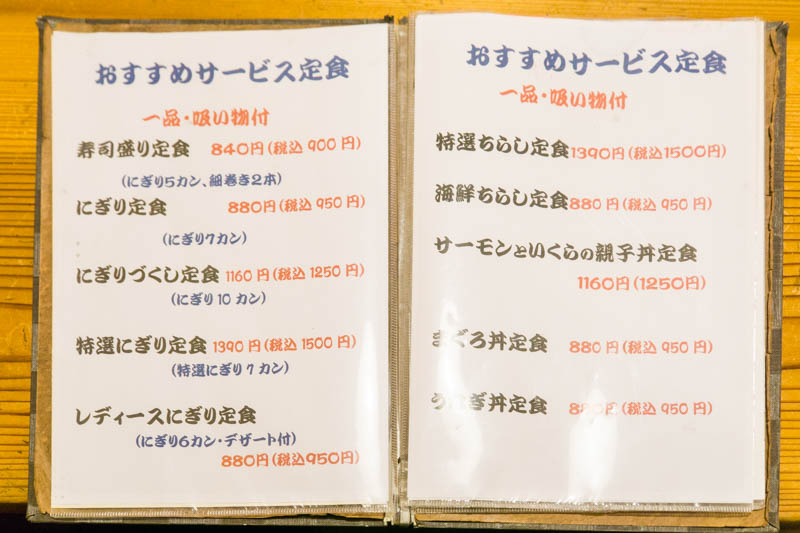 おすすめサービス定食
一品・吸い物付
寿司盛り定食 840円(税込 900 円)
(にぎり5カン、細巻き2本)
にぎり定食 880円(税込 950 円)
(にぎり7カン)
にぎりづくし定食 1160 円(税込 1250 円)
(にぎり 10 カン)
特選にぎり定食 1390 円(税込 1500 円)
(特選にぎり 7 カン)
レディースにぎり定食
(にぎり6カン・デザート付)
880円(税込950円)
おすすめサービス定食
一品・吸い物付
特選ちらし定食1390円(税込1500円)
海鮮ちらし定食880 円(税込 950 円)
サーモンといくらの親子丼定食
1160円(1250円)
まぐろ丼定食 880 円(税込 950 円)
うなぎ丼定食 880円(税込 950 円)